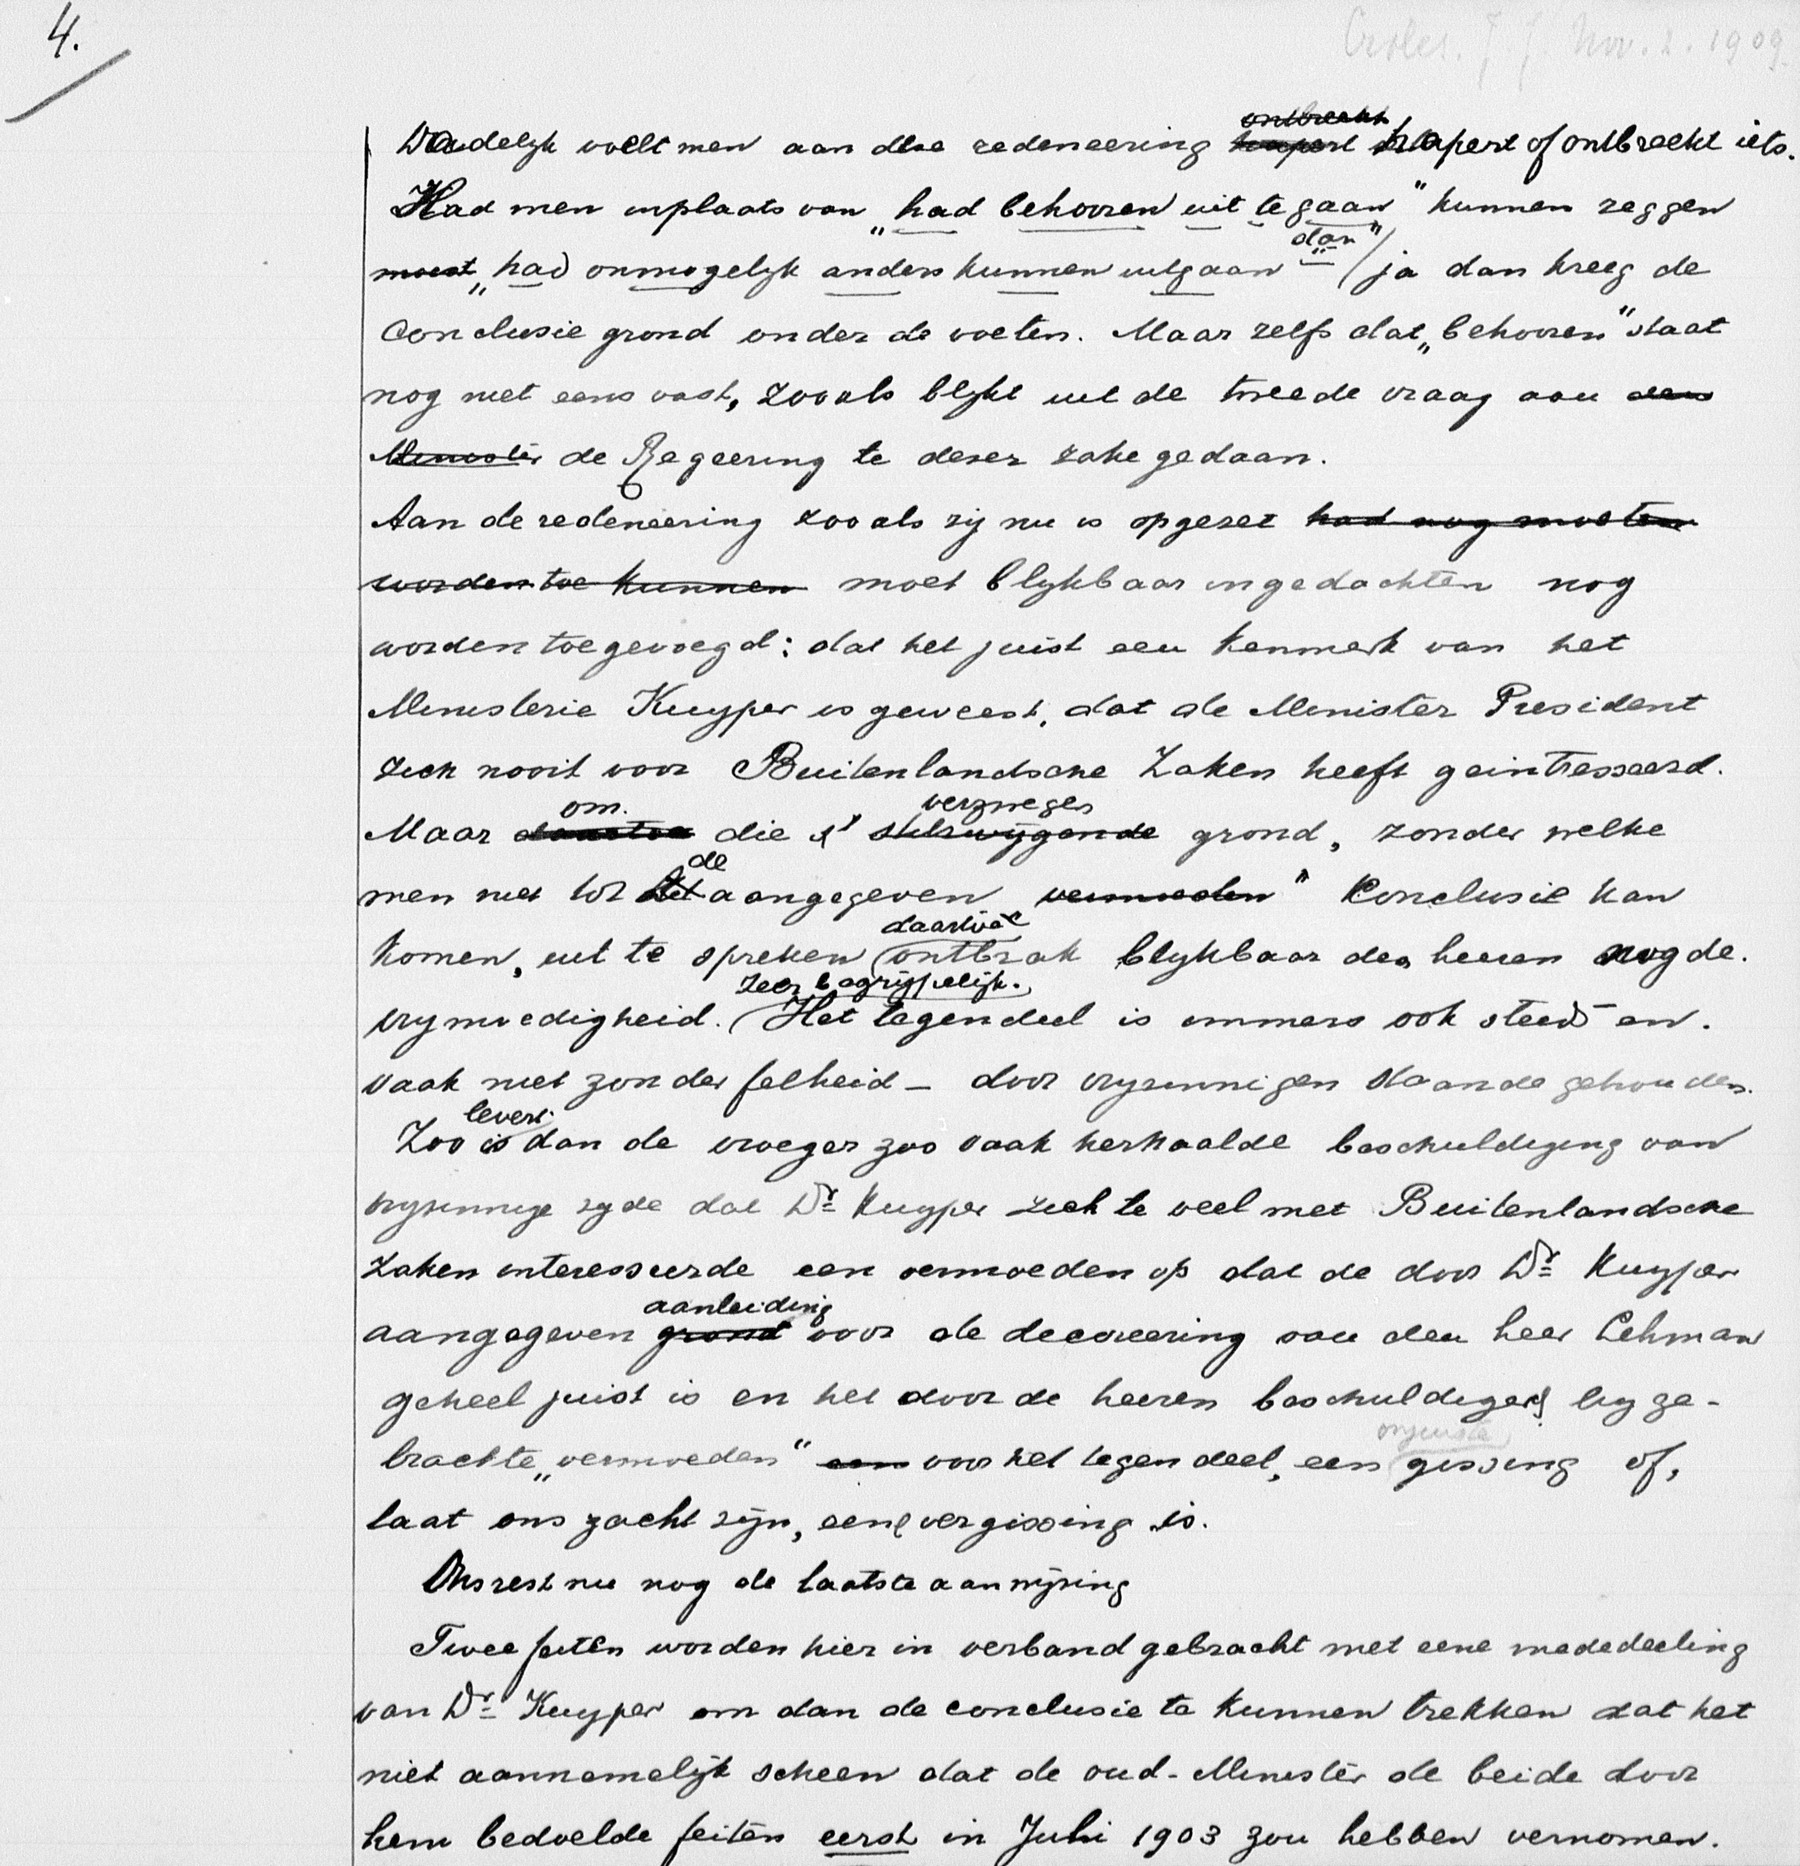 4.
Croles. J. J. Nov. 2. 1909.
Dadelyk voelt men aan deze redeneering hapert ontbreekt hapert of ontbreekt iets.
Had men inplaats van „had behooren uit te gaan" kunnen zeggen
moest „had onmogelyk anders kunnen uitgaan dan" ja dan kreeg de
conclusie grond onder de voeten. Maar zelfs dat „behooren" staat
nog niet eens vast, zooals blykt uit de tweede vraag aan den
Minister de Regeering te dezer zake gedaan.
Aan de redeneering zooals zij nu is opgezet had nog moeten
worden toe kunnen moet blykbaar in gedachten nog
worden toegevoegd: dat het juist een kenmerk van het
Ministerie Kuyper is geweest, dat de Minister President
zich nooit voor Buitenlandsche Zaken heeft geintresseerd.
Maar om die stilzwijgende verzwegen grond, zonder welke
men niet tot het de aangegeven vermoeden" conclusie kan
komen, uit te spreken daartoe ontbrak blykbaar den heeren nog de
vrymoedigheid. Zeer begrijpelijk. Het tegendeel is immers ook steeds en
vaak niet zonder felheid – door vryzinnigen staande gehouden.
Zoo is levert dan de vroeger zoo vaak herhaalde beschuldiging van
vryzinnige zyde dat Dr Kuyper zich te veel met Buitenlandsche
Zaken interesseerde een vermoeden op dat de door Dr Kuyper
aangegeven grond aanleiding voor de decoreering van den heer Lehman
geheel juist is en het door de heeren beschuldigers byge-
brachte „vermoeden" een voor het tegendeel, een onjuiste gissing of,
laat ons zacht zijn, eene vergissing is.
Ons rest nu nog de laatste aanwijzing
Twee feiten worden hier in verband gebracht met eene mededeeling
van Dr Kuyper om dan de conclusie te kunnen trekken dat het
niet aannemelijk scheen dat de oud-Minister de beide door
hem bedoelde feiten eerst in Juli 1903 zou hebben vernomen.